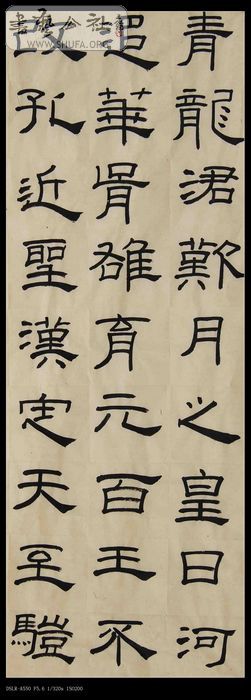 書法公社
WWW.SHUFA.ORG
青龍涒歎月之皇日河
華胥雄育元百王不
孔近聖漢定天至騹
DSLR-A550 F5.6 1/320s ISO200